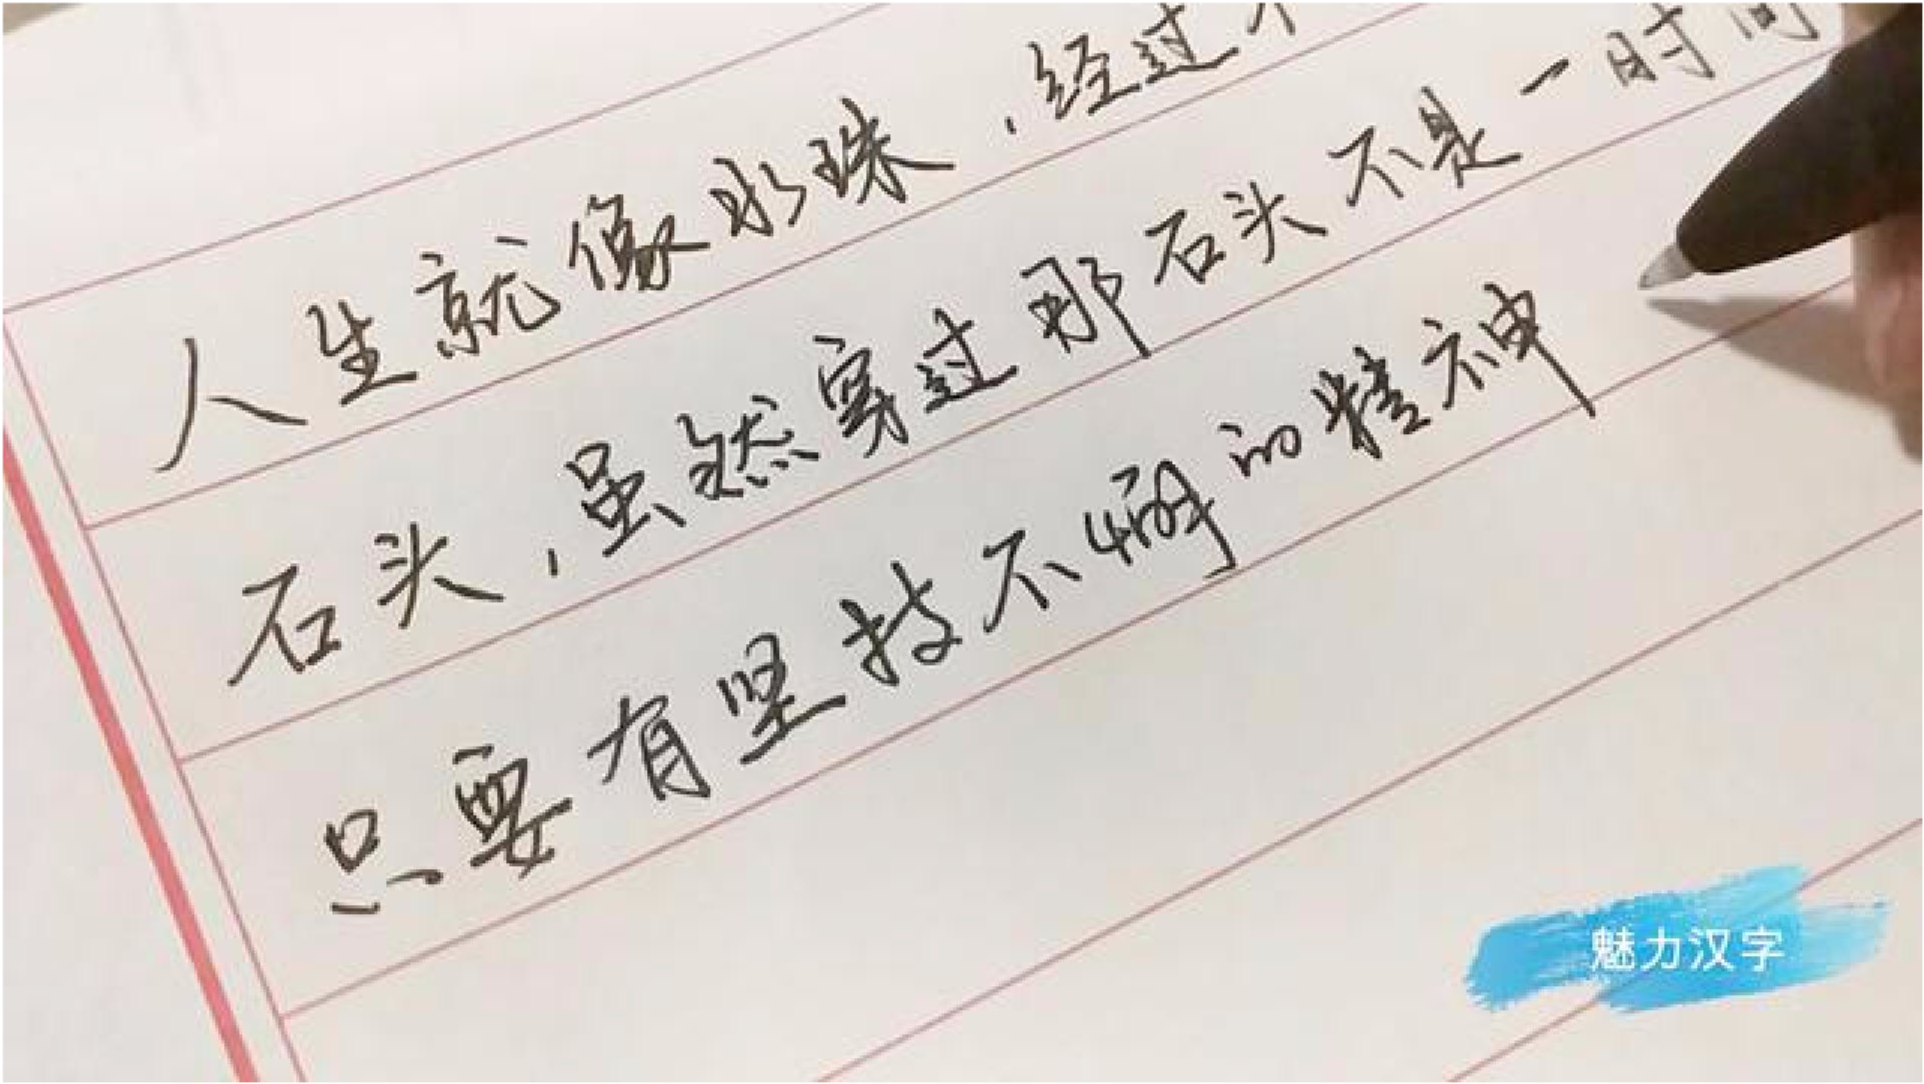 人生就像水珠,经过
石头,虽然穿过那石头不是一时间
只要有坚技不懈的精神
魅力汉字